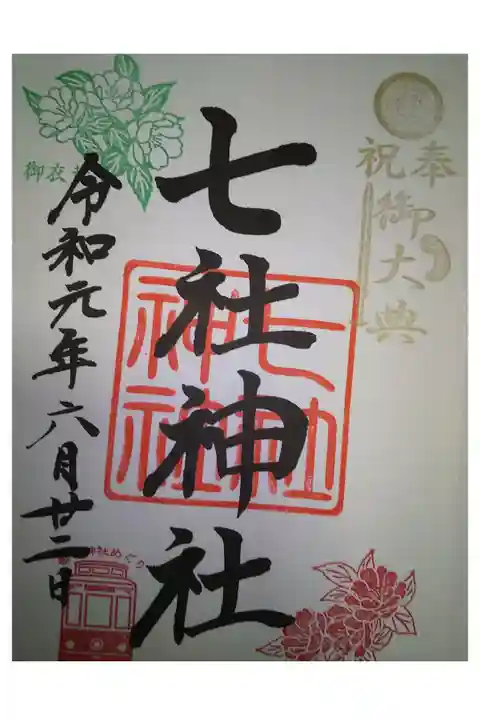 奉祝
御大典
七社神社
七社
神社
令和元年六月廿二日
御衣
神社めぐり